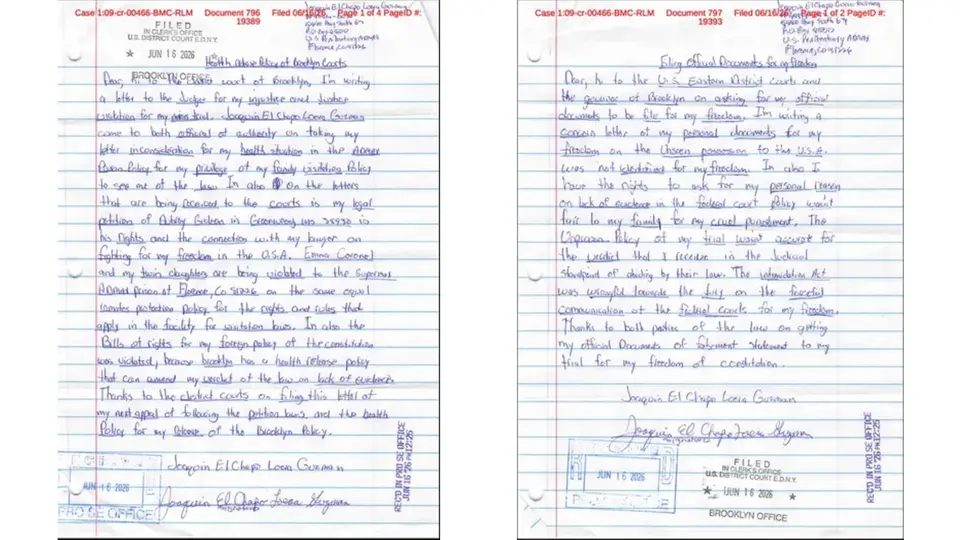 Case 1:09-cr-00466-BMC-RLM Document 796 Filed 06/16/26 Page 1 of 4 PageID #:
19389
Joaquin El Chapo Loera Guzman
Florence, CO 81226
FILED
IN CLERK'S OFFICE
U.S. DISTRICT COURT E.D.N.Y.
★ JUN 16 2026
BROOKLYN OFFICE
Health Release Policy of Brooklyn Courts
Dear, hi to the district court of Brooklyn, I'm writing
a letter to the Judge for my injustice and Justice
violation for my trial. Joaquin El Chapo Loera Guzman
came to both official of authority on taking my
letter inconsideration for my health situation in the
Policy for my privilege of my family visitation Policy
to see me of the law. In also on the letters
that are being received to the courts is my legal
petition of in Greenwood
his Rights and the connection with my lawyer on
fighting for my freedom in the U.S.A. Emma Coronel
and my twin daughters are being violated to the
prison of Florence, CO 81226 on the same equal
inmates protection policy for the rights and rules that
apply in the facility for visitation laws. In also the
Bills of rights for my foreign policy of the constitution
was violated, because brooklyn has a health release policy
that can amend my verdict of the law on lack of evidence.
Thanks to the district courts on filing this letter of
my next appeal of following the petition laws and the health
Policy for my release of the Brooklyn Policy.
Joaquin El Chapo Loera Guzman
Joaquin El Chapo Loera Guzman
signature
JUN 16 2026
PRO SE OFFICE
REC'D IN PRO SE OFFICE
JUN 16 '26
Case 1:09-cr-00466-BMC-RLM Document 797 Filed 06/16/26 Page 1 of 2 PageID #:
19393
Joaquin El Chapo Loera Guzman
U.S. Penitentiary
Florence, CO 81226
Filing Official Documents for my freedom
Dear, hi to the U.S. Eastern District Courts and
the governor of Brooklyn on asking for my official
documents to be file for my freedom. I'm writing a
concern letter of my personal documents for my
freedom on the Unseen possession to the U.S.A.
was not for my freedom. In also I
have the rights to ask for my personal reason
on lack of evidence in the federal court policy wasn't
fair to my family for my cruel punishment. The
Policy of my trial wasn't accurate for
the verdict that I receive in the Judicial
standpoint of abiding by their law. The Act
was wrongful towards the jury on the
communication of the federal courts for my freedom.
Thanks to both parties of the law on getting
my official Documents of statement to my
trial for my freedom of
Joaquin El Chapo Loera Guzman
Joaquin El Chapo Loera Guzman
signature
JUN 16 2026
FILED
IN CLERK'S OFFICE
U.S. DISTRICT COURT E.D.N.Y.
★ JUN 16 2026 ★
BROOKLYN OFFICE
REC'D IN PRO SE OFFICE
JUN 16 '26